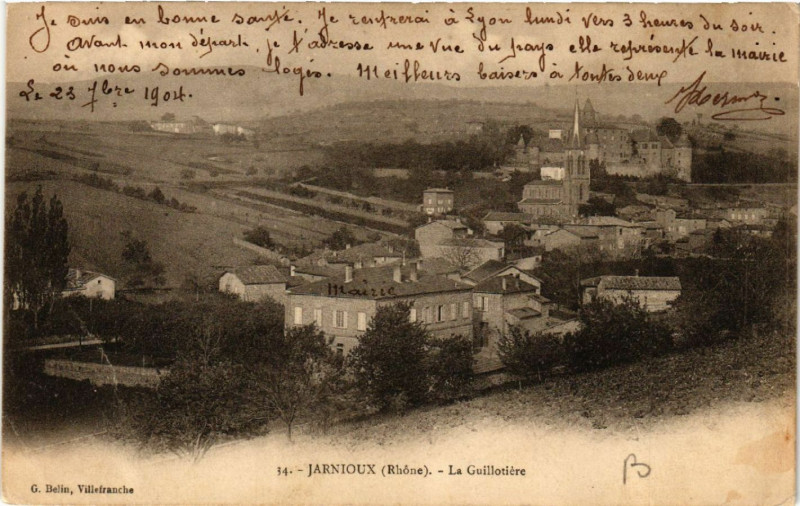 Je suis en bonne santé. Je rentrerai à Lyon lundi vers 3 heures du soir.
Avant mon départ, je t'adresse une vue du pays elle représente la mairie
où nous sommes logés. Meilleurs baisers à toutes deux
Le 23 7bre 1904.
Mairie
34. - JARNIOUX (Rhône). - La Guillotière
B
G. Belin, Villefranche